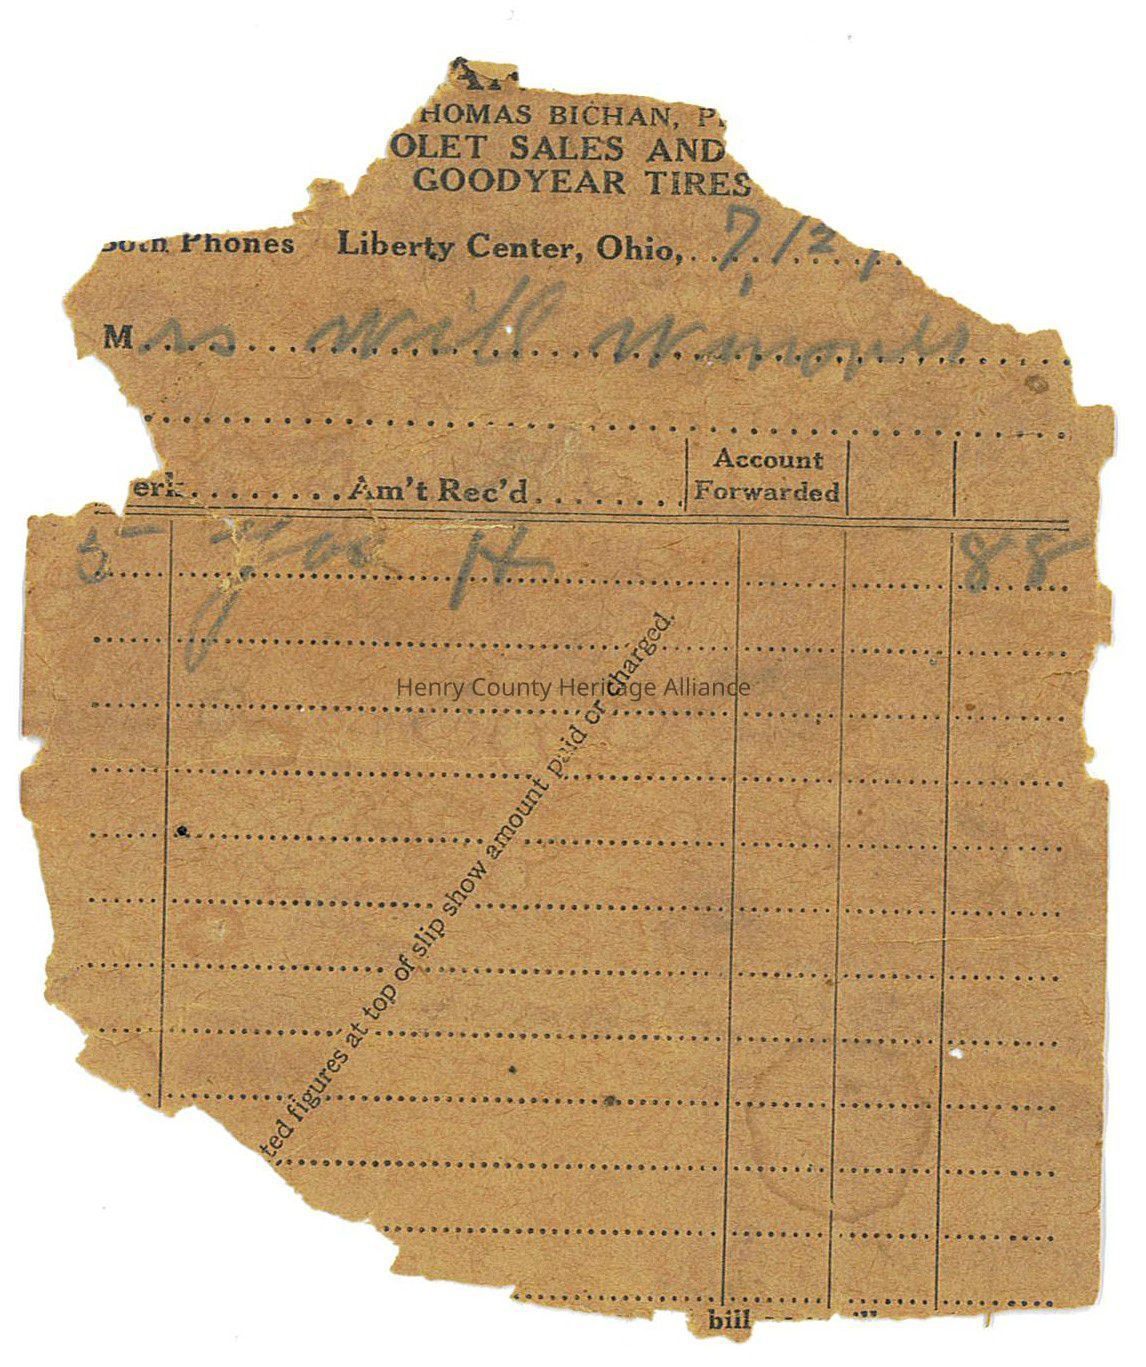 HOMAS BICHAN, P
OLET SALES AND
GOODYEAR TIRES
Both Phones Liberty Center, Ohio, 7/12
Mrs Will
erk Am't Rec'd Account Forwarded
5 Gas H 88
ted figures at top of slip show amount paid or charged.
Henry County Heritage Alliance
bill